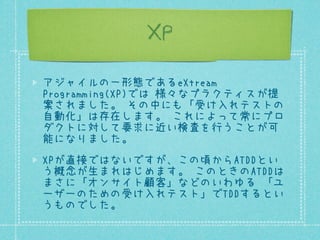 XP
アジャイルの一形態であるeXtream
Programming(XP)では 様々なプラクティスが提
案されました。 その中にも「受け入れテストの
自動化」は存在します。 これによって常にプロ
ダクトに対して要求に近い検査を行うことが可
能になりました。
XPが直接ではないですが、この頃からATDDとい
う概念が生まれはじめます。 このときのATDDは
まさに「オンサイト顧客」などのいわゆる 「ユ
ーザーのための受け入れテスト」でTDDするとい
うものでした。